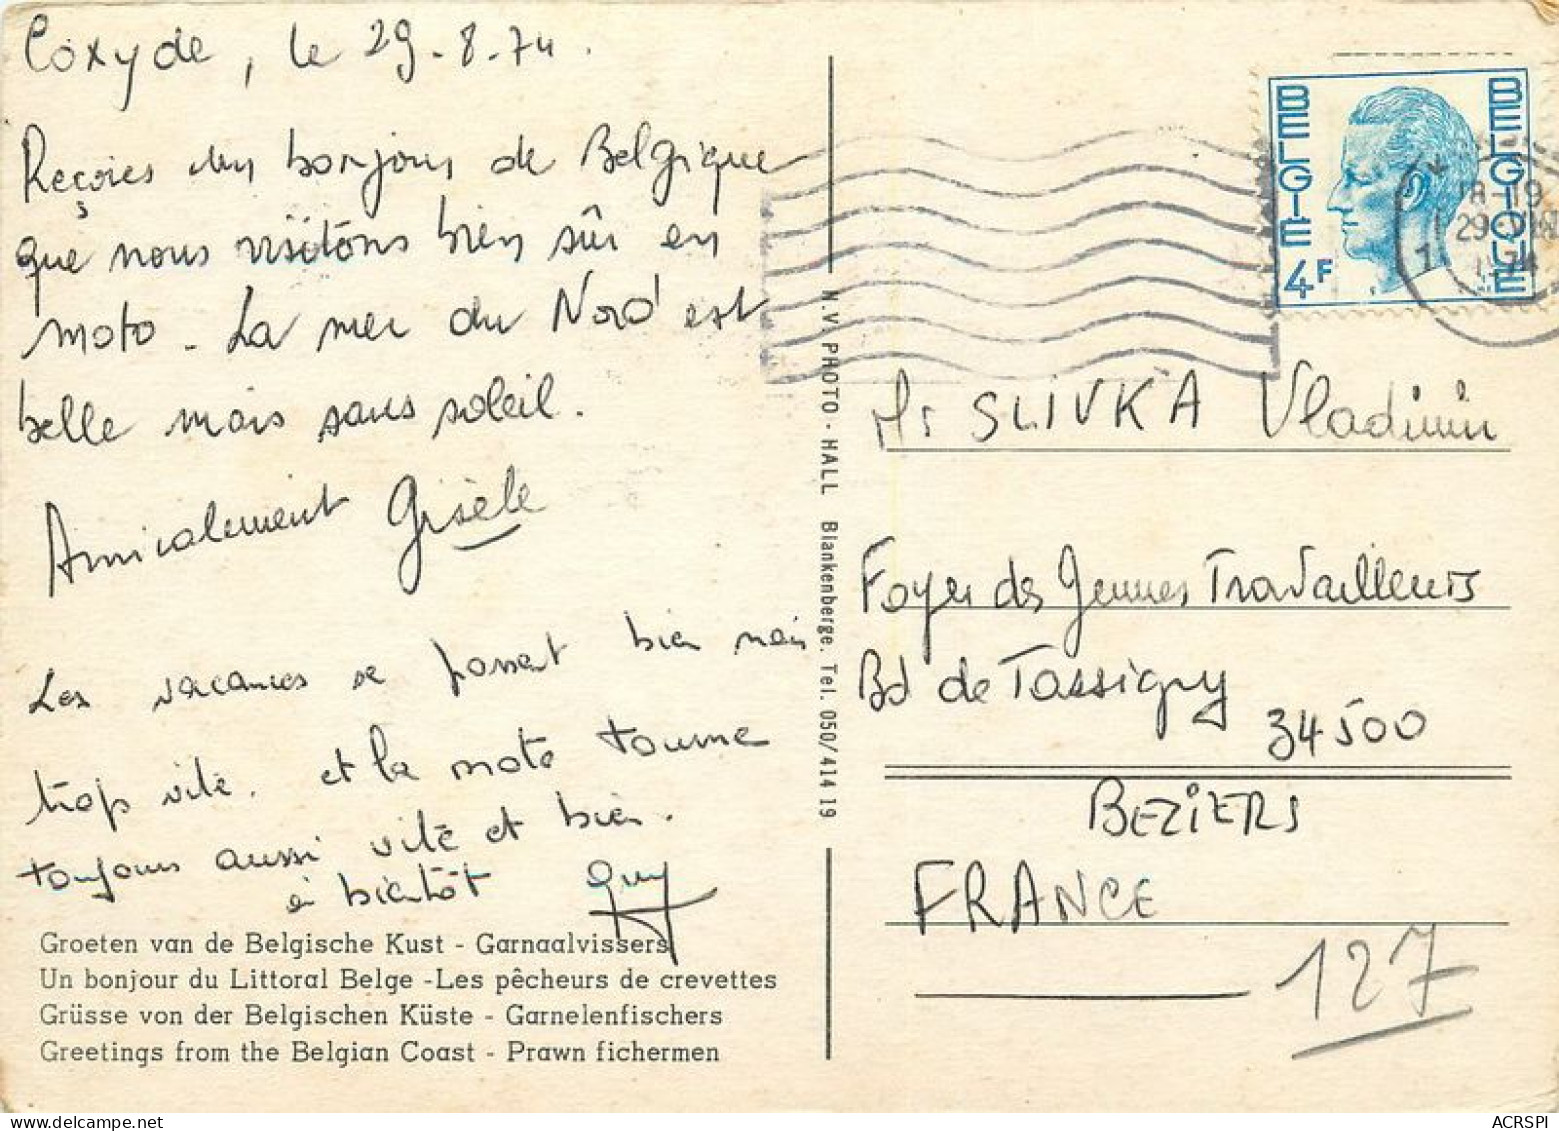 Coxyde, le 29-8-74.
Reçois un bonjour de Belgique
que nous visitons bien sûr en
moto - La mer du Nord est
belle mais sans soleil.
Amicalement Gisèle
Les vacances se passent bien mais
trop vite. et la moto tourne
toujours aussi vite et bien.
à bientôt Guy
Groeten van de Belgische Kust - Garnaalvissers
Un bonjour du Littoral Belge -Les pêcheurs de crevettes
Grüsse von der Belgischen Küste - Garnelenfischers
Greetings from the Belgian Coast - Prawn fichermen
N.V. PHOTO - HALL Blankenberge. Tel. 050/414 19
BELGIE
BELGIQUE
4F
18-19
29
74
Mr SLIVKA Vladimir
Foyer des Jeunes Travailleurs
Bd de Tassigny
34500
BEZIERS
FRANCE
127
ACRSPI